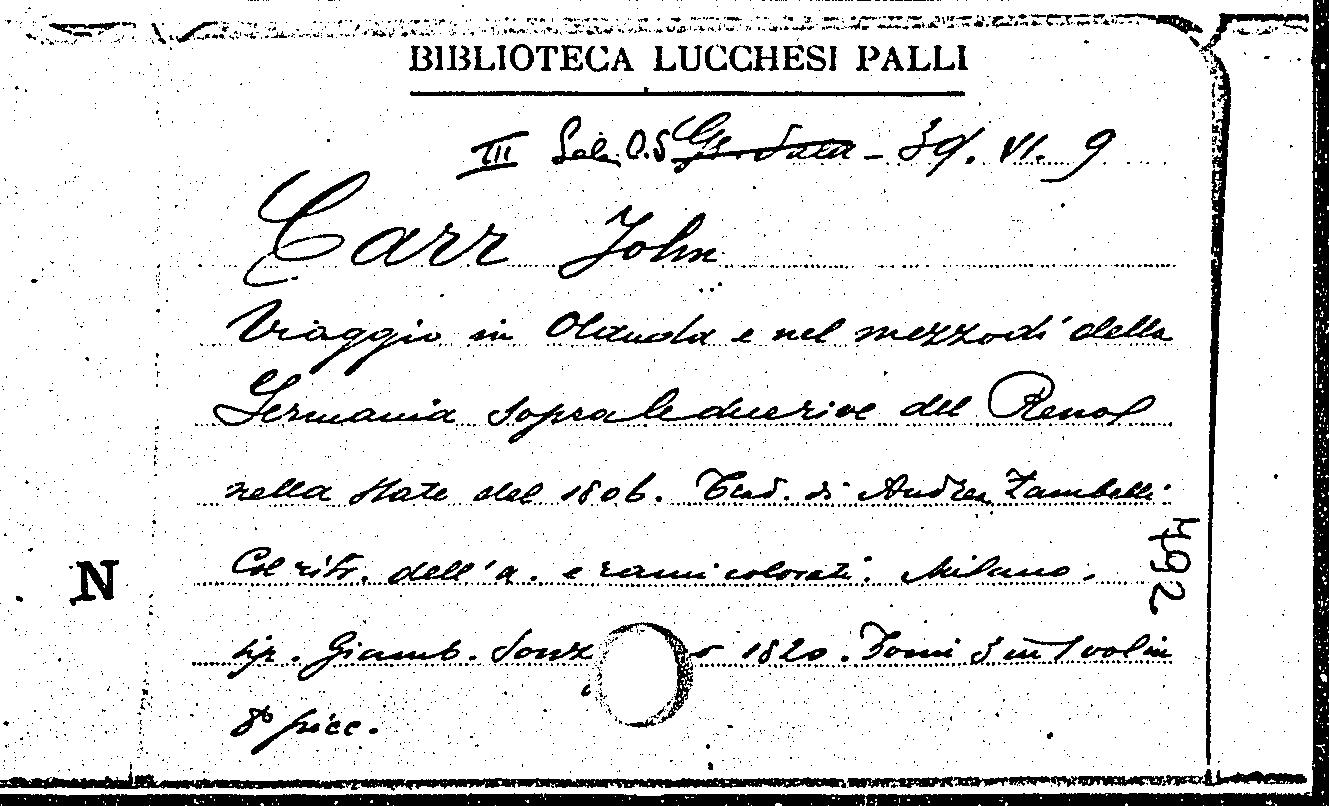 BIBLIOTECA LUCCHESI PALLI
III Sala O.S - 39. VI. 9
Carr John
Viaggio in Olanda e nel mezzodì della
Germania sopra le due rive del Reno
nella state del 1806. Trad. di Andrea Zambelli.
Col ritr. dell'a. e rami colorati. Milano.
tip. Giamb. Sonz o 1820. Tomi 3 in 1 vol in
8° picc.
N
492